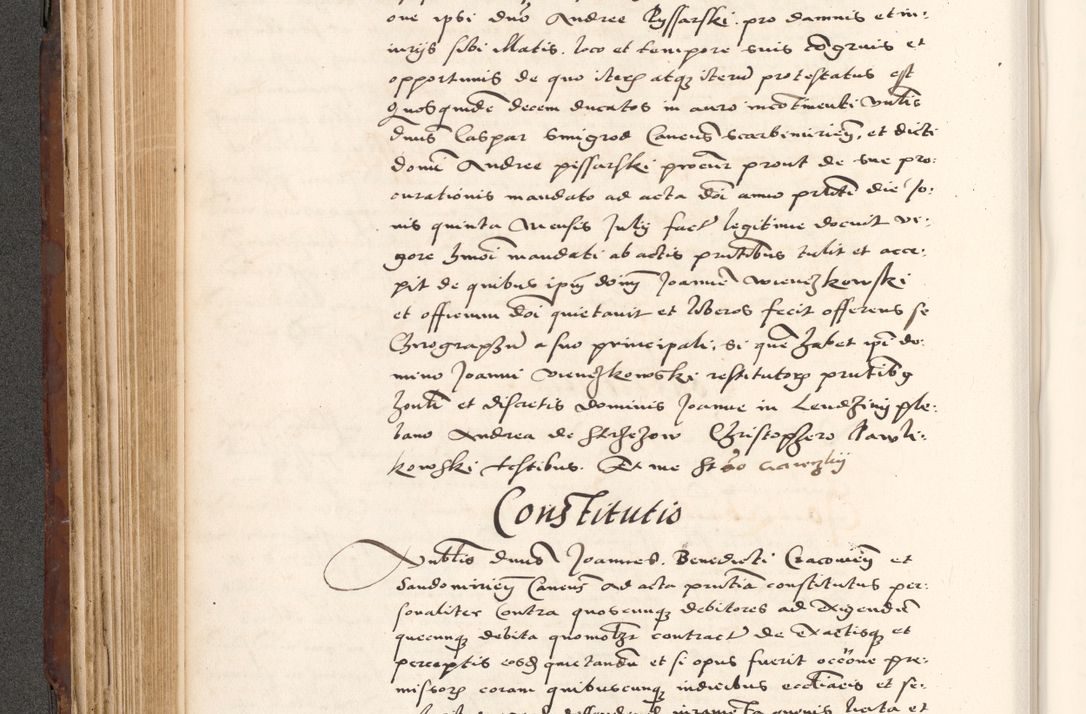 one ipsi dno Andree Ryssarski pro damnis et in:
iurijs sibi illatis. loco et tempore suis congruis et
opportunis de quo iterum atq iteru protestatus est
Quosquide decem ducatos in auro incotinenti Vnblis
dnus Caspar Smigrod Cancus Scarbimirien, et dicti
domi Andree pissarski procur prout de sue pro:
curationis mandato ad acta doi anno pnti die Jo:
nis quinta Mensis Julij fact legitime docuit vi:
gore hmoi mandati ab actis pntibus tulit et acce:
pit de quibus ipm doim Joanne wienczkowski
et officium doi quietauit et liberos fecit offerens se
Chirographu a suo principali, si que habet ipi do:
mino Joanni Vienczkowski restituturu pntibq
honli et discretis dominis Joanne in Lendziny ple:
bano Andrea de Strzezow Christophero Pawli:
kowski testibus. Et me
Constitutio
Vnblis dnus Joannes. Benedicti Cracouien et
Sandomirien Cancus ad acta pntia constitutus per:
sonaliter Contra quoscunq debitores ad Exigendu
quecunq debita quomolzt contract de Exactisq et
perceptis eosq quietandu et si opus fuerit occone pre:
missorum coram quibuscunq iudicibus ecctiaeis et se: